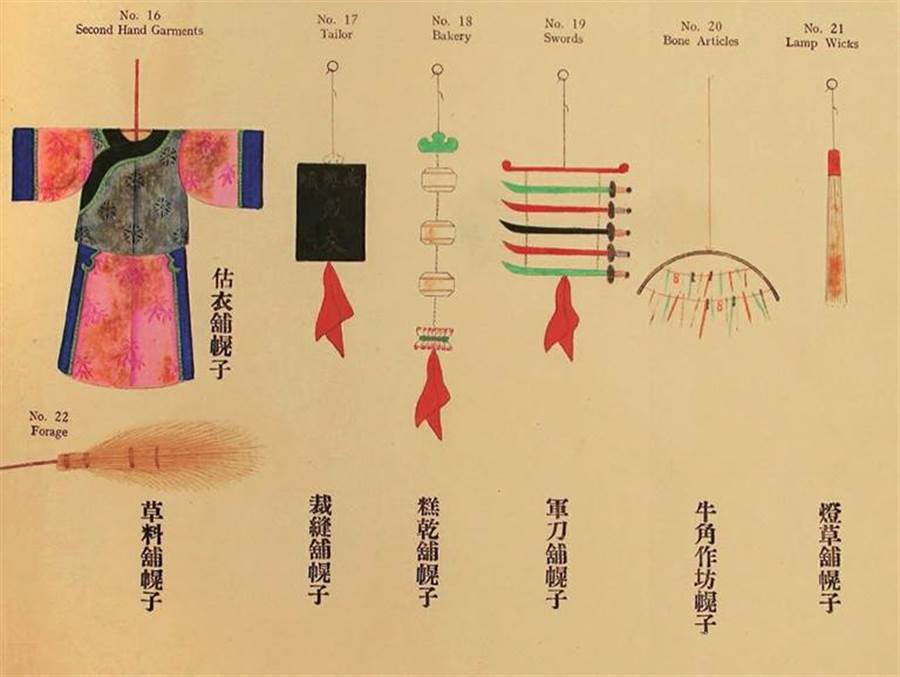 No. 16
Second Hand Garments
No. 17
Tailor
No. 18
Bakery
No. 19
Swords
No. 20
Bone Articles
No. 21
Lamp Wicks
估衣舖幌子
No. 22
Forage
草料舖幌子
裁縫舖幌子
糕乾舖幌子
軍刀舖幌子
牛角作坊幌子
燈草舖幌子